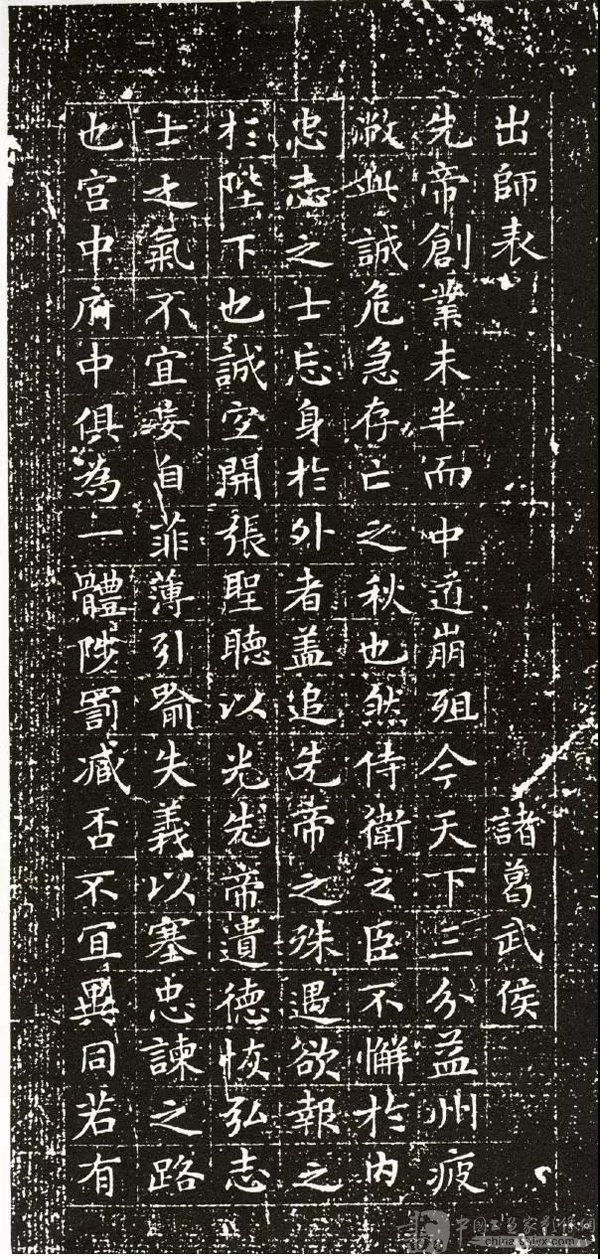 出師表 諸葛武侯
先帝創業未半而中道崩殂今天下三分益州疲
敝誠危急存亡之秋也然侍衛之臣不懈於内
忠志之士忘身於外者盖追先帝之殊遇欲報之
於陛下也誠宜開張聖聽以光先帝遺德恢弘志
士之氣不宜妄自菲薄引喻失義以塞忠諫之路
也宫中府中俱為一體陟罰臧否不宜異同若有